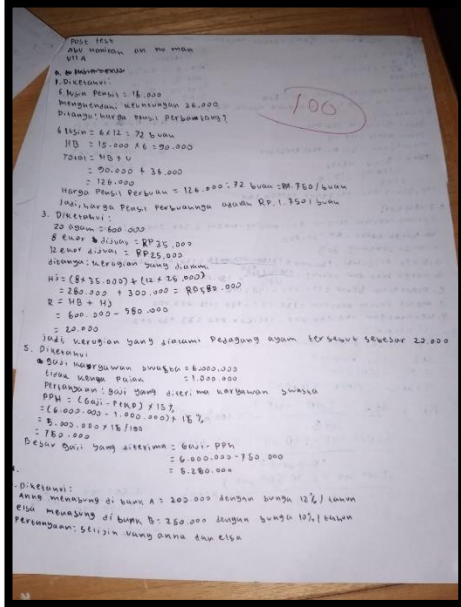 Post test
Abu
VII A
1. Diketahui:
6 lusin Pensil = 15.000
Menghendaki keuntungan 36.000
Ditanya: harga Pensil Perbatang?
100
6 lusin = 6 x 12 = 72 buah
HB = 15.000 x 6 = 90.000
Total = HB + U
= 90.000 + 36.000
= 126.000
Harga Pensil Perbuah = 126.000 : 72 buah = RP. 1.750 / buah
Jadi, harga Pensil Perbuahnya adalah RP. 1.750 / buah
3. Diketahui:
20 ayam = 600.000
8 ekor dijual = RP35.000
12 ekor dijual = RP25.000
ditanya: kerugian yang dialami
HJ = (8 x 35.000) + (12 x 25.000)
= 280.000 + 300.000 = RP580.000
R = HB + HJ
= 600.000 - 580.000
= 20.000
Jadi kerugian yang dialami Pedagang ayam tersebut sebesar 20.000
5. Diketahui
gaji karyawan swasta = 6.000.000
tidak kena Pajak = 1.000.000
Pertanyaan: gaji yang diterima karyawan swasta
PPH = (Gaji - PTKP) x 15%
= (6.000.000 - 1.000.000) x 15%
= 5.000.000 x 15/100
= 750.000
Besar gaji yang diterima = Gaji - PPh
= 6.000.000 - 750.000
= 5.250.000
Diketahui:
Anna menabung di bank A = 200.000 dengan bunga 12% / tahun
elsa menabung di bank B = 250.000 dengan bunga 10% / tahun
Pertanyaan: selisih uang anna dan elsa